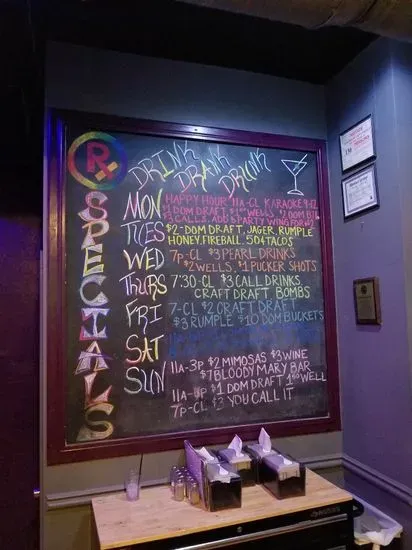 Rx
SPECIALS
DRINK
DRANK
DRUNK
MON HAPPY HOUR 11A-CL KARAOKE 9-12
$1 DOM DRAFT, $1.50 WELLS, $2 DOM BTL
$3 CALLS. ADD $ PARTY WING FOR
TUES $2-DOM DRAFT, JAGER, RUMPLE
HONEY, FIREBALL, 50¢ TACOS
WED 7P-CL $3 PEARL DRINKS
$2 WELLS, $1 PUCKER SHOTS
THURS 7:30-CL $3 CALL DRINKS
CRAFT DRAFT BOMBS
FRI 7-CL $2 CRAFT DRAFT
$3 RUMPLE $10 DOM BUCKETS
SAT
SUN 11A-3P $2 MIMOSAS $3 WINE
$7 BLOODY MARY BAR
11A-4P $1 DOM DRAFT 1.50 WELL
7P-CL $3 YOU CALL IT